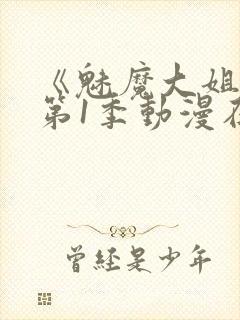 《魅魔大姐
第1季動漫在
曾经是少年